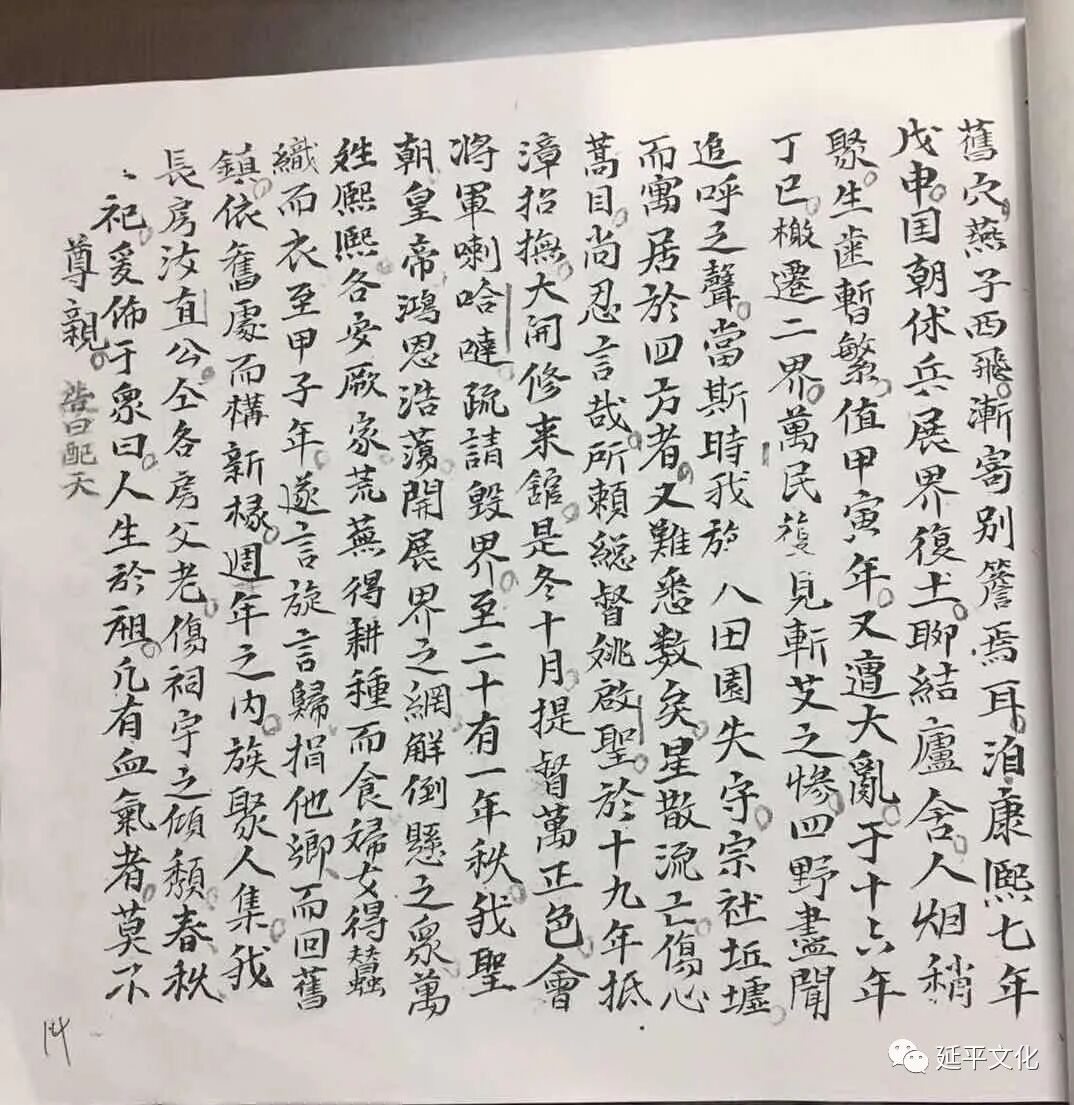 舊穴燕子西飛漸寄別簷焉耳洎康熙七年
戊申国朝休兵展界復土聊結廬舍人烟稍
聚生齒暫繁值甲寅年又遭大亂于十六年
丁巳檄遷二界萬民復見斬艾之慘四野盡聞
追呼之聲當斯時我族八田園失守宗社坵墟
而寓居於四方者又難悉数矣星散流亡傷心
蒿目尚忍言哉所賴総督姚啟聖於十九年抵
漳招撫大開修来舘是冬十月提督萬正色會
將軍喇哈噠疏請毀界至二十有一年秋我聖
朝皇帝鴻恩浩蕩開展界之網解倒懸之衆萬
姓熙熙各安厥家荒蕪得耕種而食婦女得蠶
織而衣至甲子年遂言旋言歸捐他鄉而回舊
鎮依舊處而構新椽週年之内族聚人集我
長房汝直公仝各房父老傷祠宇之傾頽春秋
祀爰佈于衆曰人生於祖凢有血氣者莫不
尊親 配天
14
延平文化